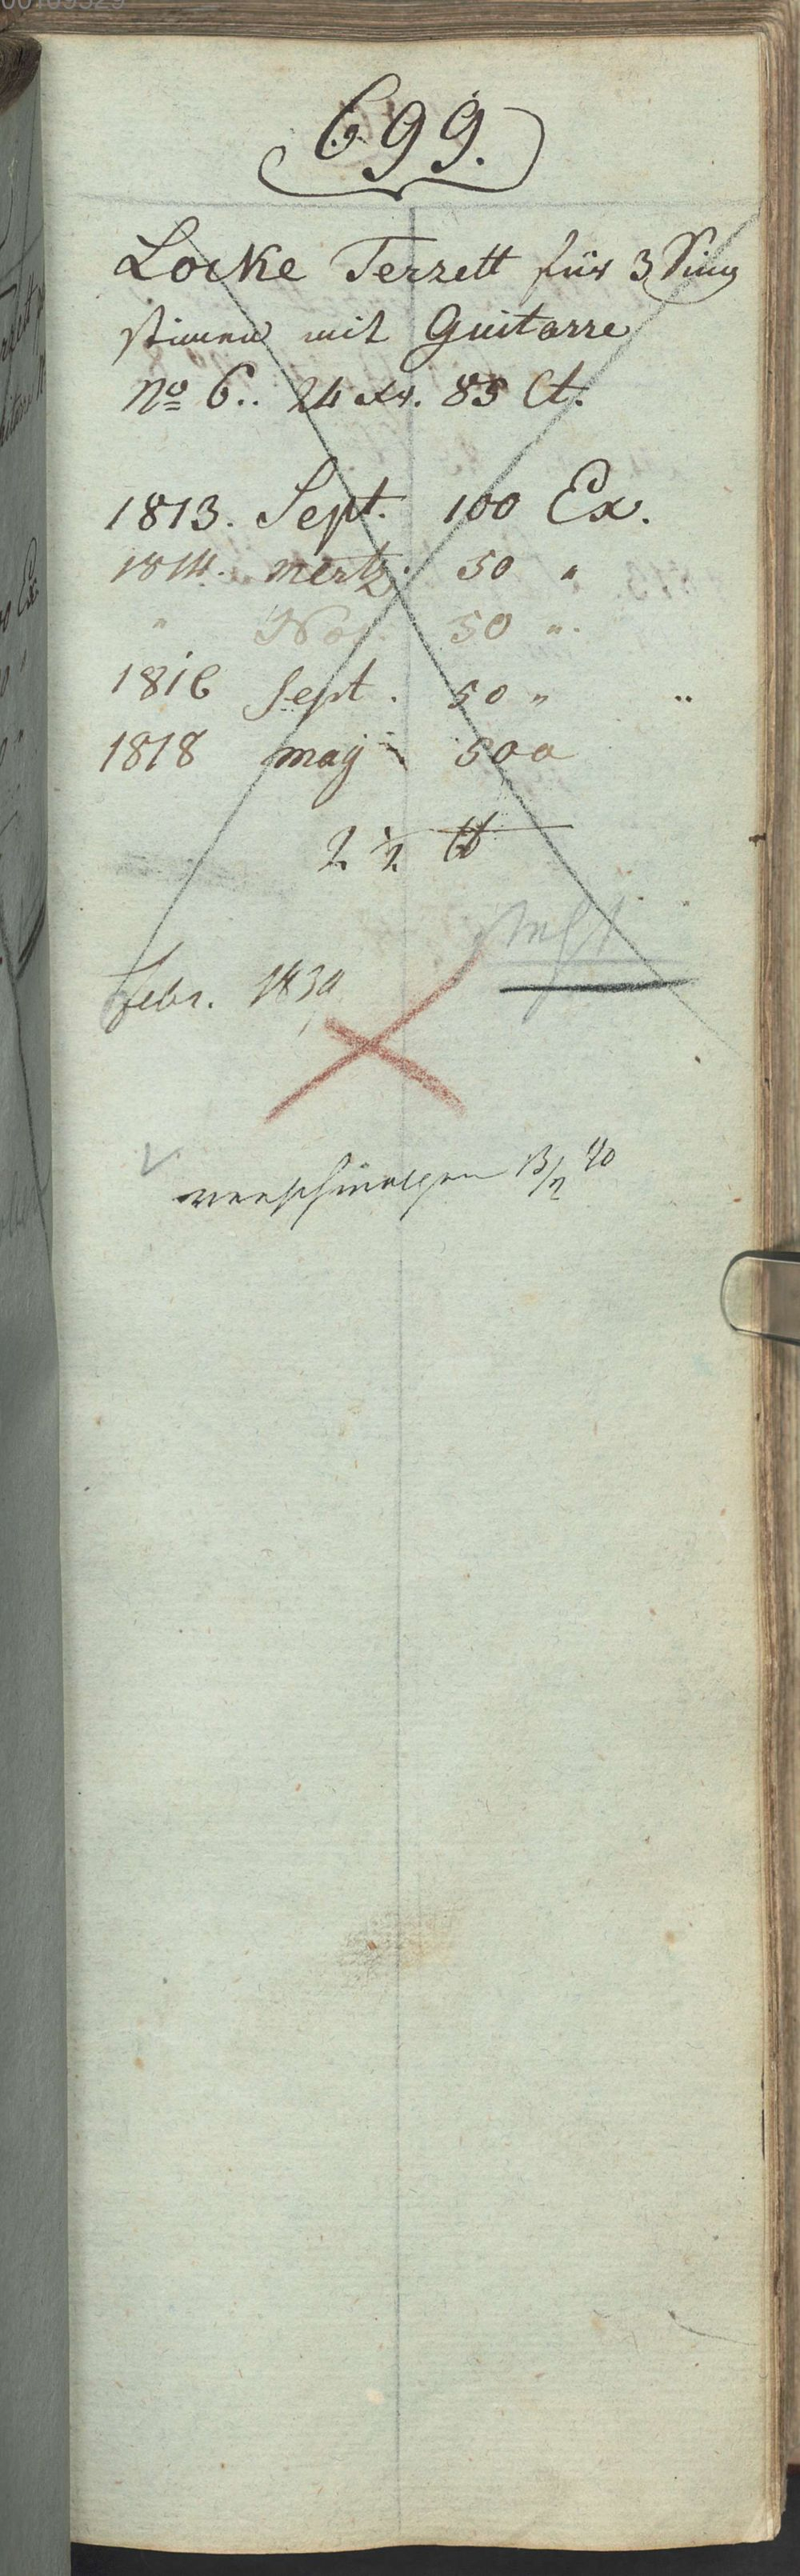 699.
Locke Terzett für 3 Sing
stimen mit Guitarre
No 6.. 24 xr. 85 Ct.
1813. Sept. 100 Ex.
1814. Mertz. 50 "
" Nov. 50 ".
1816 Sept. 50 "
1818 maÿ 50
2 ½ ℔
Febr. 1830
13/2 40